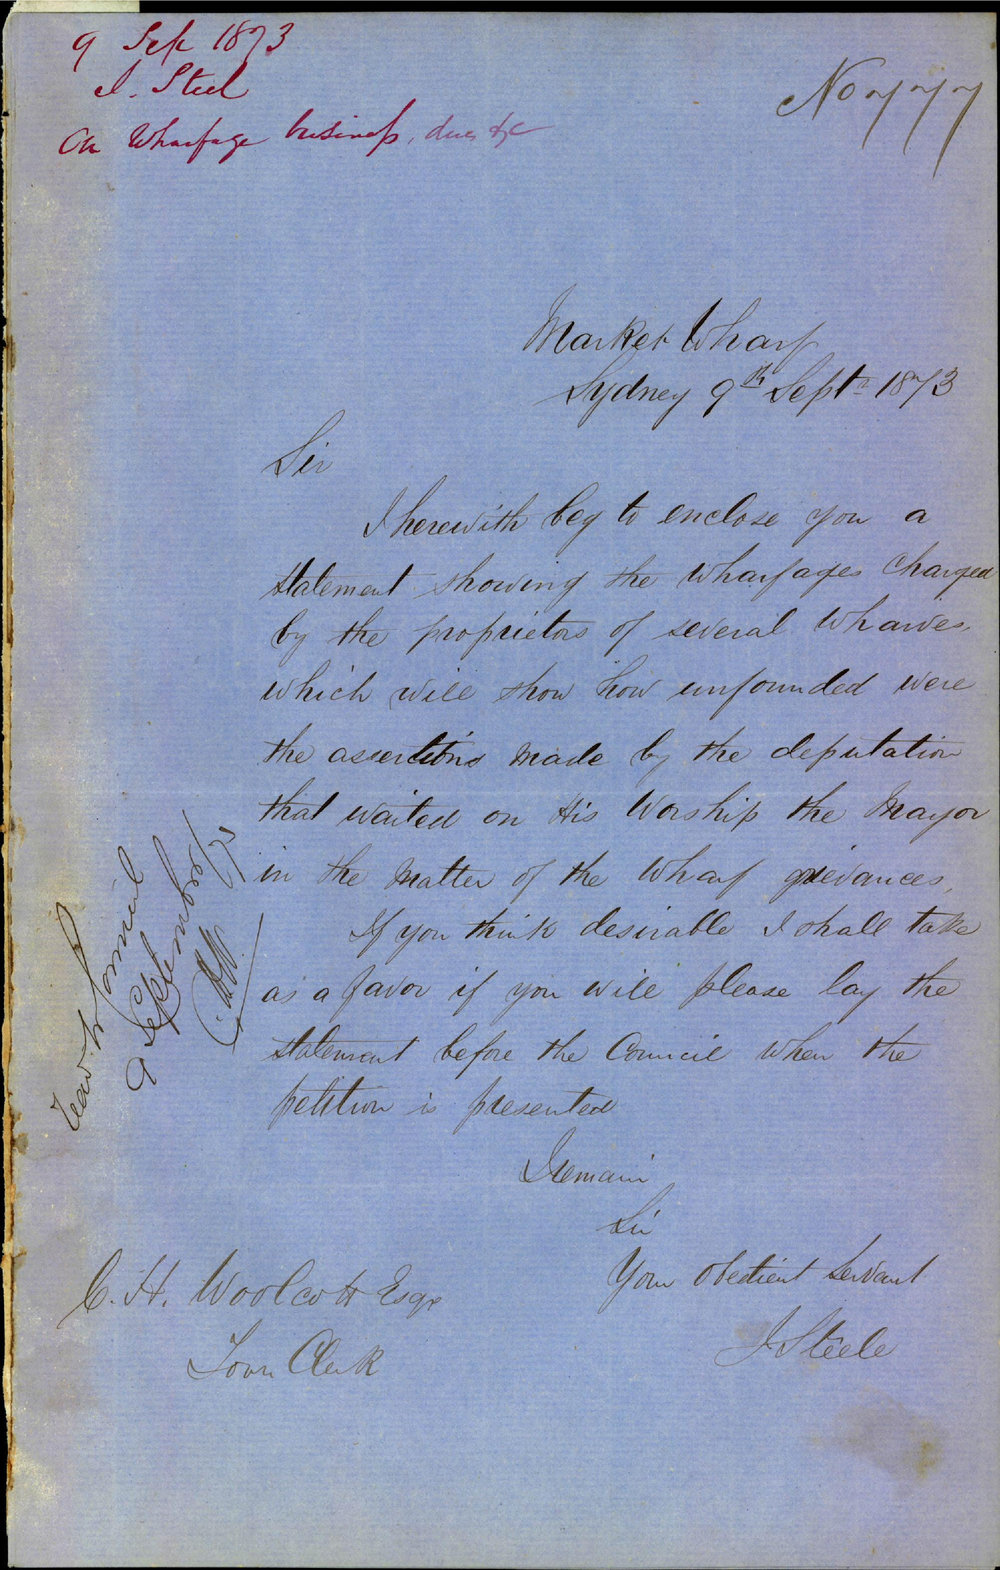 9 Sep 1873
J. Steel
On Wharfage business, dues &c
No 777
Market Wharf
Sydney 9th Septr 1873
Sir
I herewith beg to enclose you a
statement showing the Wharfages Charged
by the proprietors of several Wharves,
which will show how unfounded were
the assertions made by the deputation
that waited on His Worship the Mayor
in the Matter of the Wharf grievances,
If you think desirable I shall take
as a favor if you will please lay the
statement before the Council when the
petition is presented
I remain
Sir
Your Obedient Servant
J Steele
C. H. Woolcott Esqr
Town Clerk
Council
9 September /73